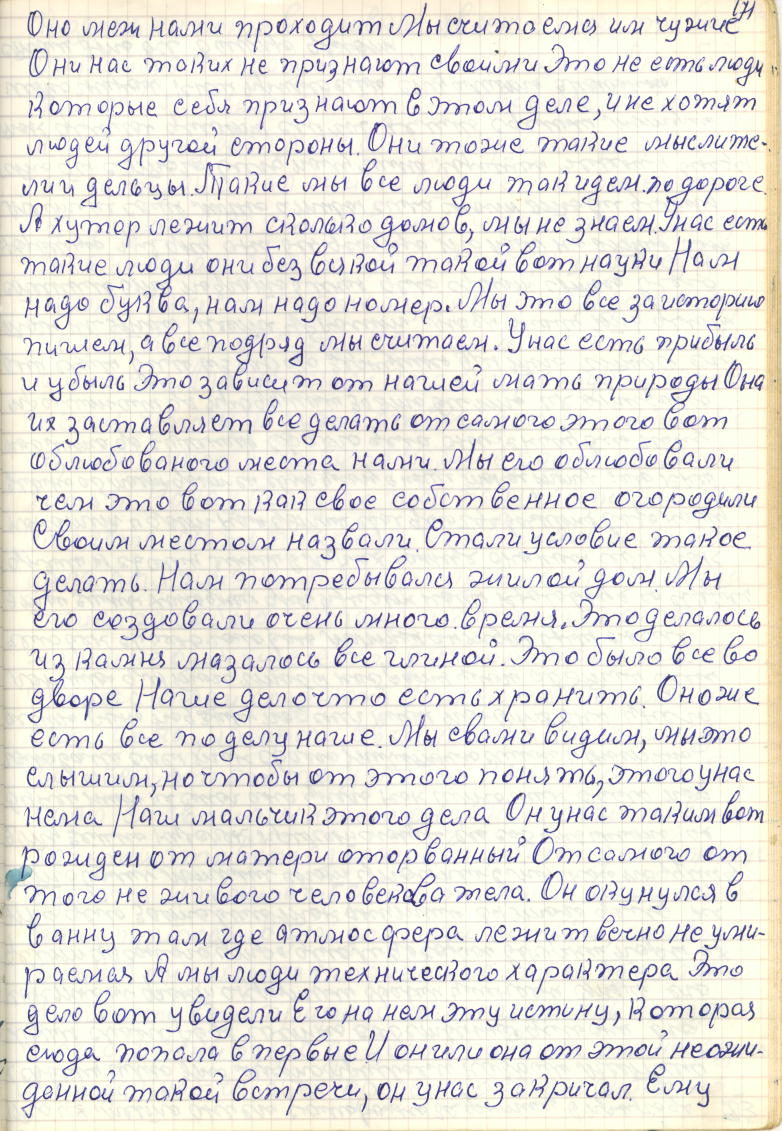 171
Оно меж нами проходит Мы считаемся им чужие
Они нас таких не признают своими Это не есть люди
которые себя признают в этом деле, и не хотят
людей другой стороны. Они тоже такие мыслите-
ли и дельцы. Такие мы все люди так идем по дороге.
А хутор лежит сколько домов, мы не знаем. У нас есть
такие люди они без всякой такой вот науки Нам
надо буква, нам надо номер. Мы это все за историю
пишем, а все подряд мы считаем. У нас есть прибыль
и убыль Это зависит от нашей мать природы Она
их заставляет все делать от самого этого вот
облюбованого места нами. Мы его облюбовали
чем это вот как свое собственное огородили
Своим местом назвали. Стали условие такое
делать. Нам потребывался жилой дом. Мы
его создовали очень много время. Это делалось
из камня мазалось все глиной. Это было все во
дворе Наше дело что есть хранить. Оно же
есть все по делу наше. Мы свами видим, мы это
слышим, но чтобы от этого понять, этого у нас
нема Наш мальчик этого дела Он у нас таким вот
рожден от матери оторванный От самого от
того не живого человекова тела. Он окунулся в
ванну там где атмосфера лежит вечно не уми-
раемая А мы люди технического характера Это
дело вот увидели Его на нем эту истину, которая
сюда попала в первые И он или она от этой неожи-
данной такой встречи, он у нас закричал. Ему